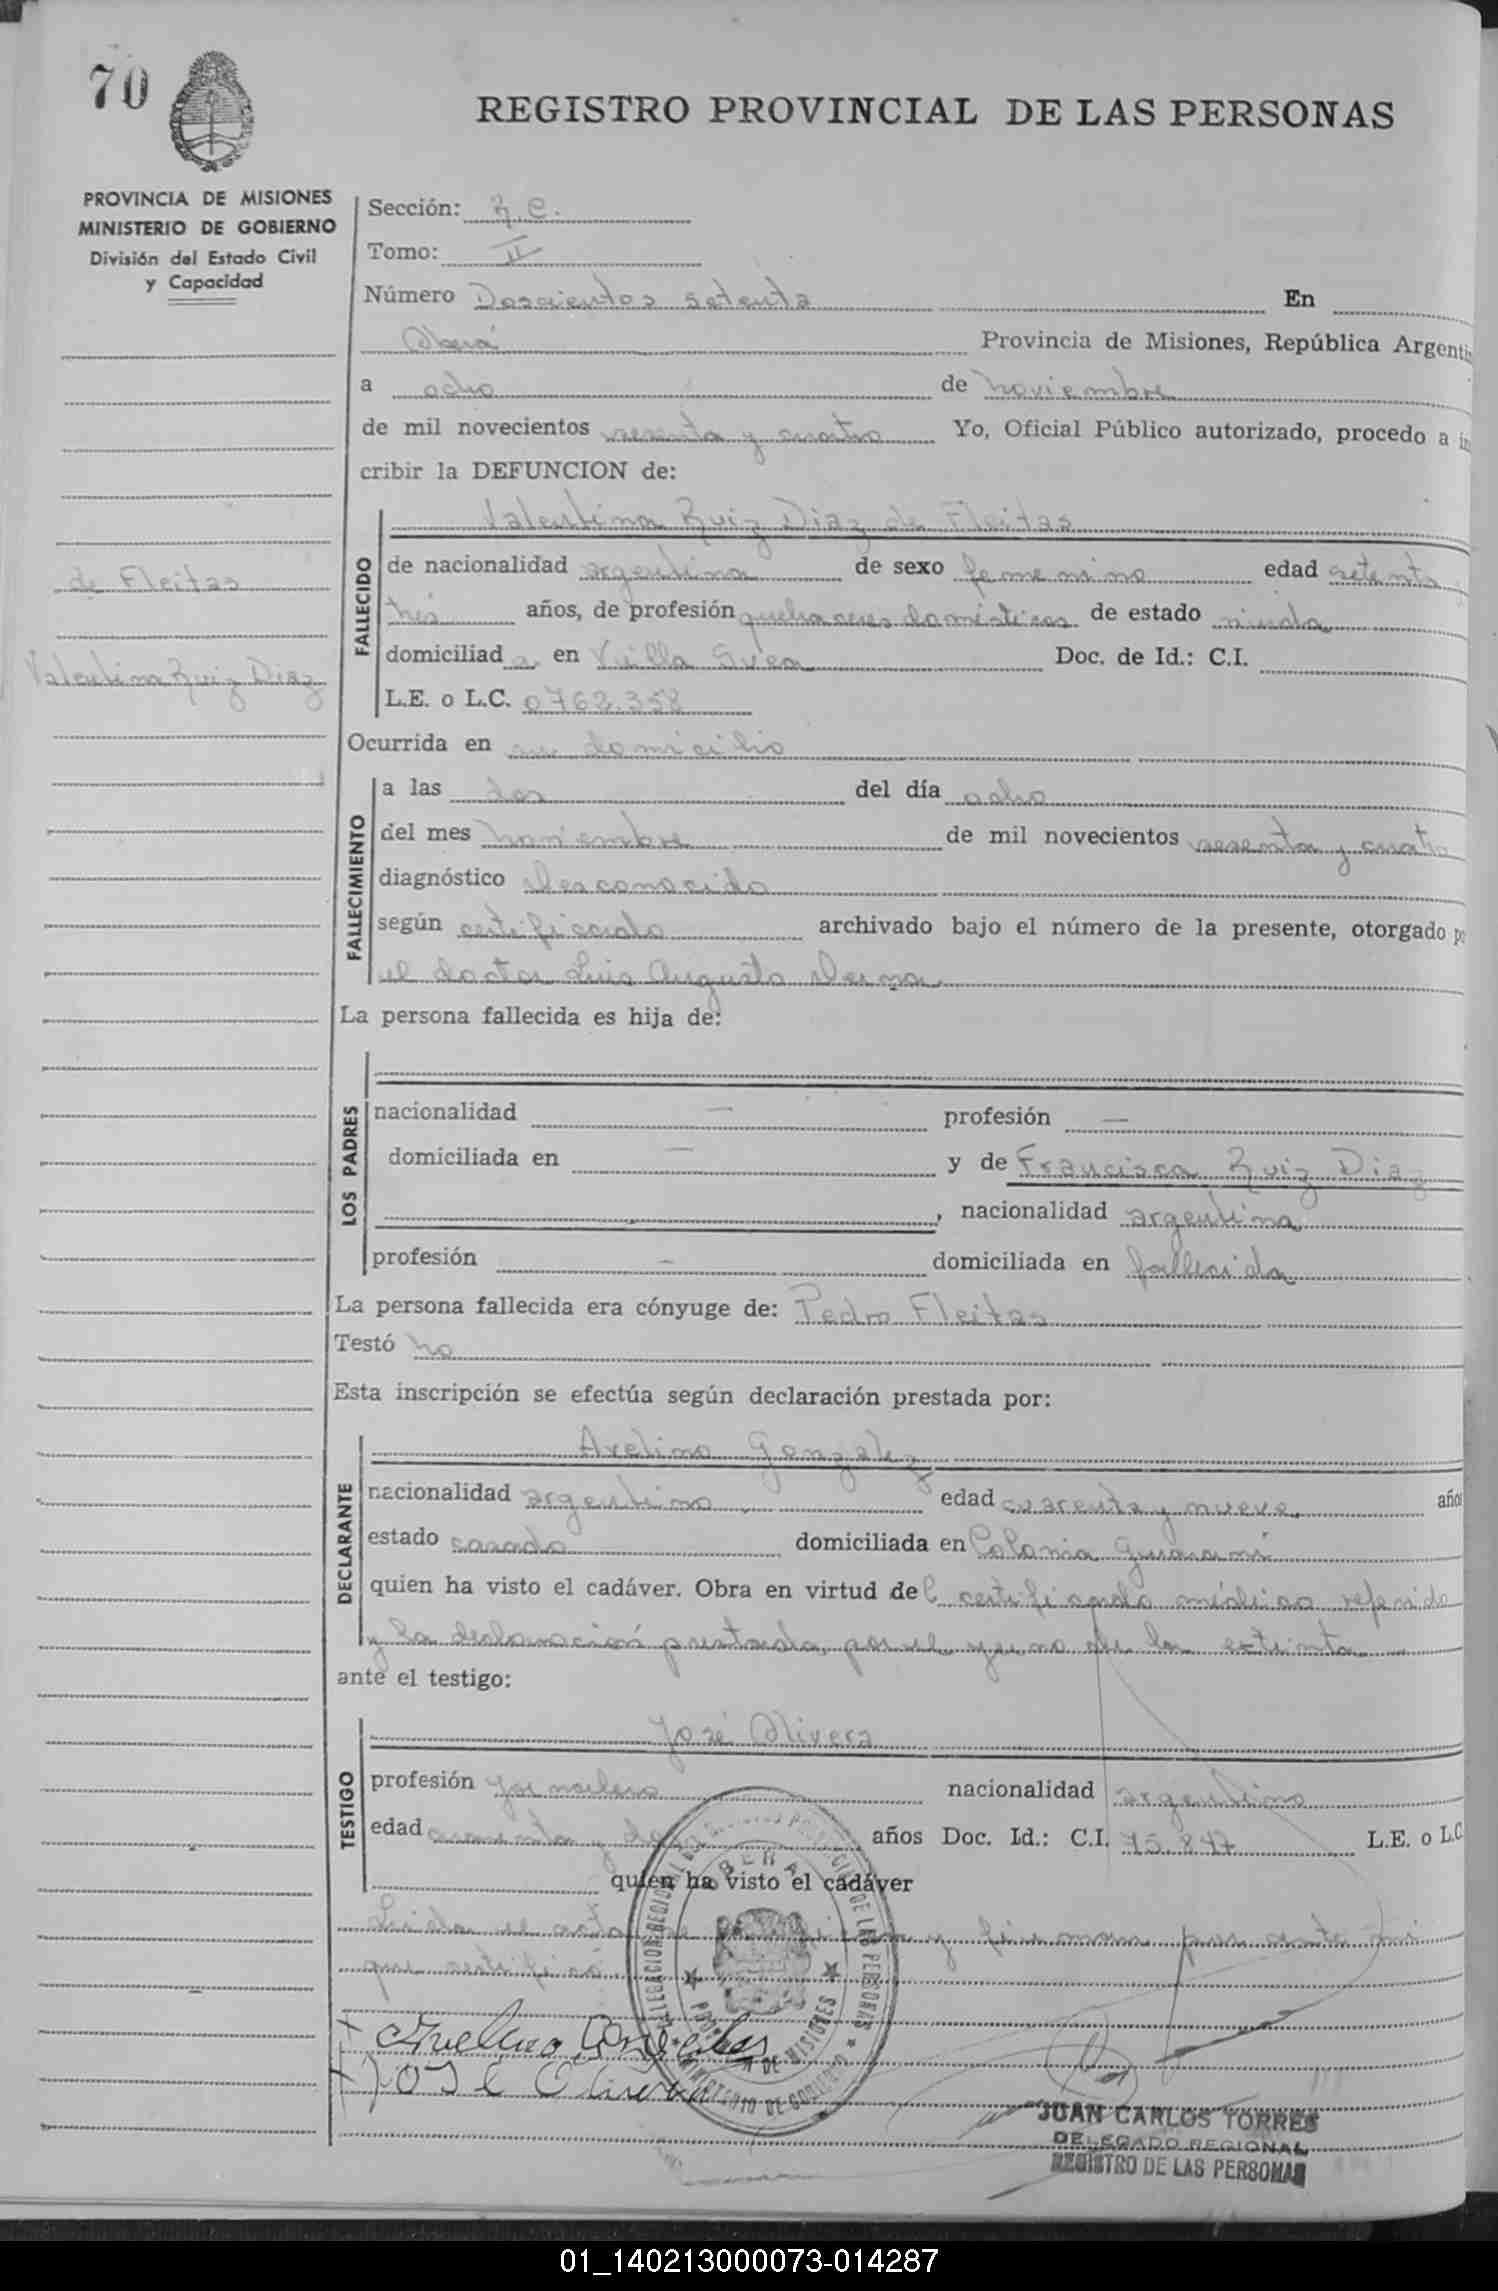 70
REGISTRO PROVINCIAL DE LAS PERSONAS
PROVINCIA DE MISIONES
MINISTERIO DE GOBIERNO
División del Estado Civil
y Capacidad
Sección: R.C.
Tomo: II
Número Doscientos setenta En
Oberá Provincia de Misiones, República Argenti
a ocho de noviembre
de mil novecientos sesenta y cuatro Yo, Oficial Público autorizado, procedo a in
cribir la DEFUNCION de:
FALLECIDO
Valentina Ruiz Diaz de Fleitas
de nacionalidad argentina de sexo femenino edad setenta y
tres años, de profesión quehaceres domésticos de estado viuda
domiciliad a en Villa Svea Doc. de Id.: C.I.
L.E. o L.C. 0762.358
de Fleitas
Valentina Ruiz Diaz
Ocurrida en su domicilio
FALLECIMIENTO
a las dos del día ocho
del mes noviembre de mil novecientos sesenta y cuatro
diagnóstico Desconocido
según certificado archivado bajo el número de la presente, otorgado po
el doctor Luis Augusto Derna
La persona fallecida es hija de:
LOS PADRES
nacionalidad — profesión —
domiciliada en — y de Francisca Ruiz Diaz
, nacionalidad argentina
profesión — domiciliada en fallecida
La persona fallecida era cónyuge de: Pedro Fleitas
Testó no
Esta inscripción se efectúa según declaración prestada por:
DECLARANTE
Avelino Gonzalez
nacionalidad argentino edad cuarenta y nueve años
estado casado domiciliada en Colonia Guaraní
quien ha visto el cadáver. Obra en virtud del certificado médico referido
y la declaración prestada por el yerno de la extinta
ante el testigo:
TESTIGO
José Olivera
profesión jornalero nacionalidad argentino
edad cuarenta y dos años Doc. Id.: C.I. 15.847 L.E. o L.C
quien ha visto el cadáver
Leida el acta y firman por ante mi
que certifico
Avelino Gonzales
JOSE Olivera
DELEGACION REGIONAL PROVINCIAL DE LAS PERSONAS
OBERA
PROVINCIA DE MISIONES
MINISTERIO DE GOBIERNO
JUAN CARLOS TORRES
DELEGADO REGIONAL
REGISTRO DE LAS PERSONAS
01_140213000073-014287